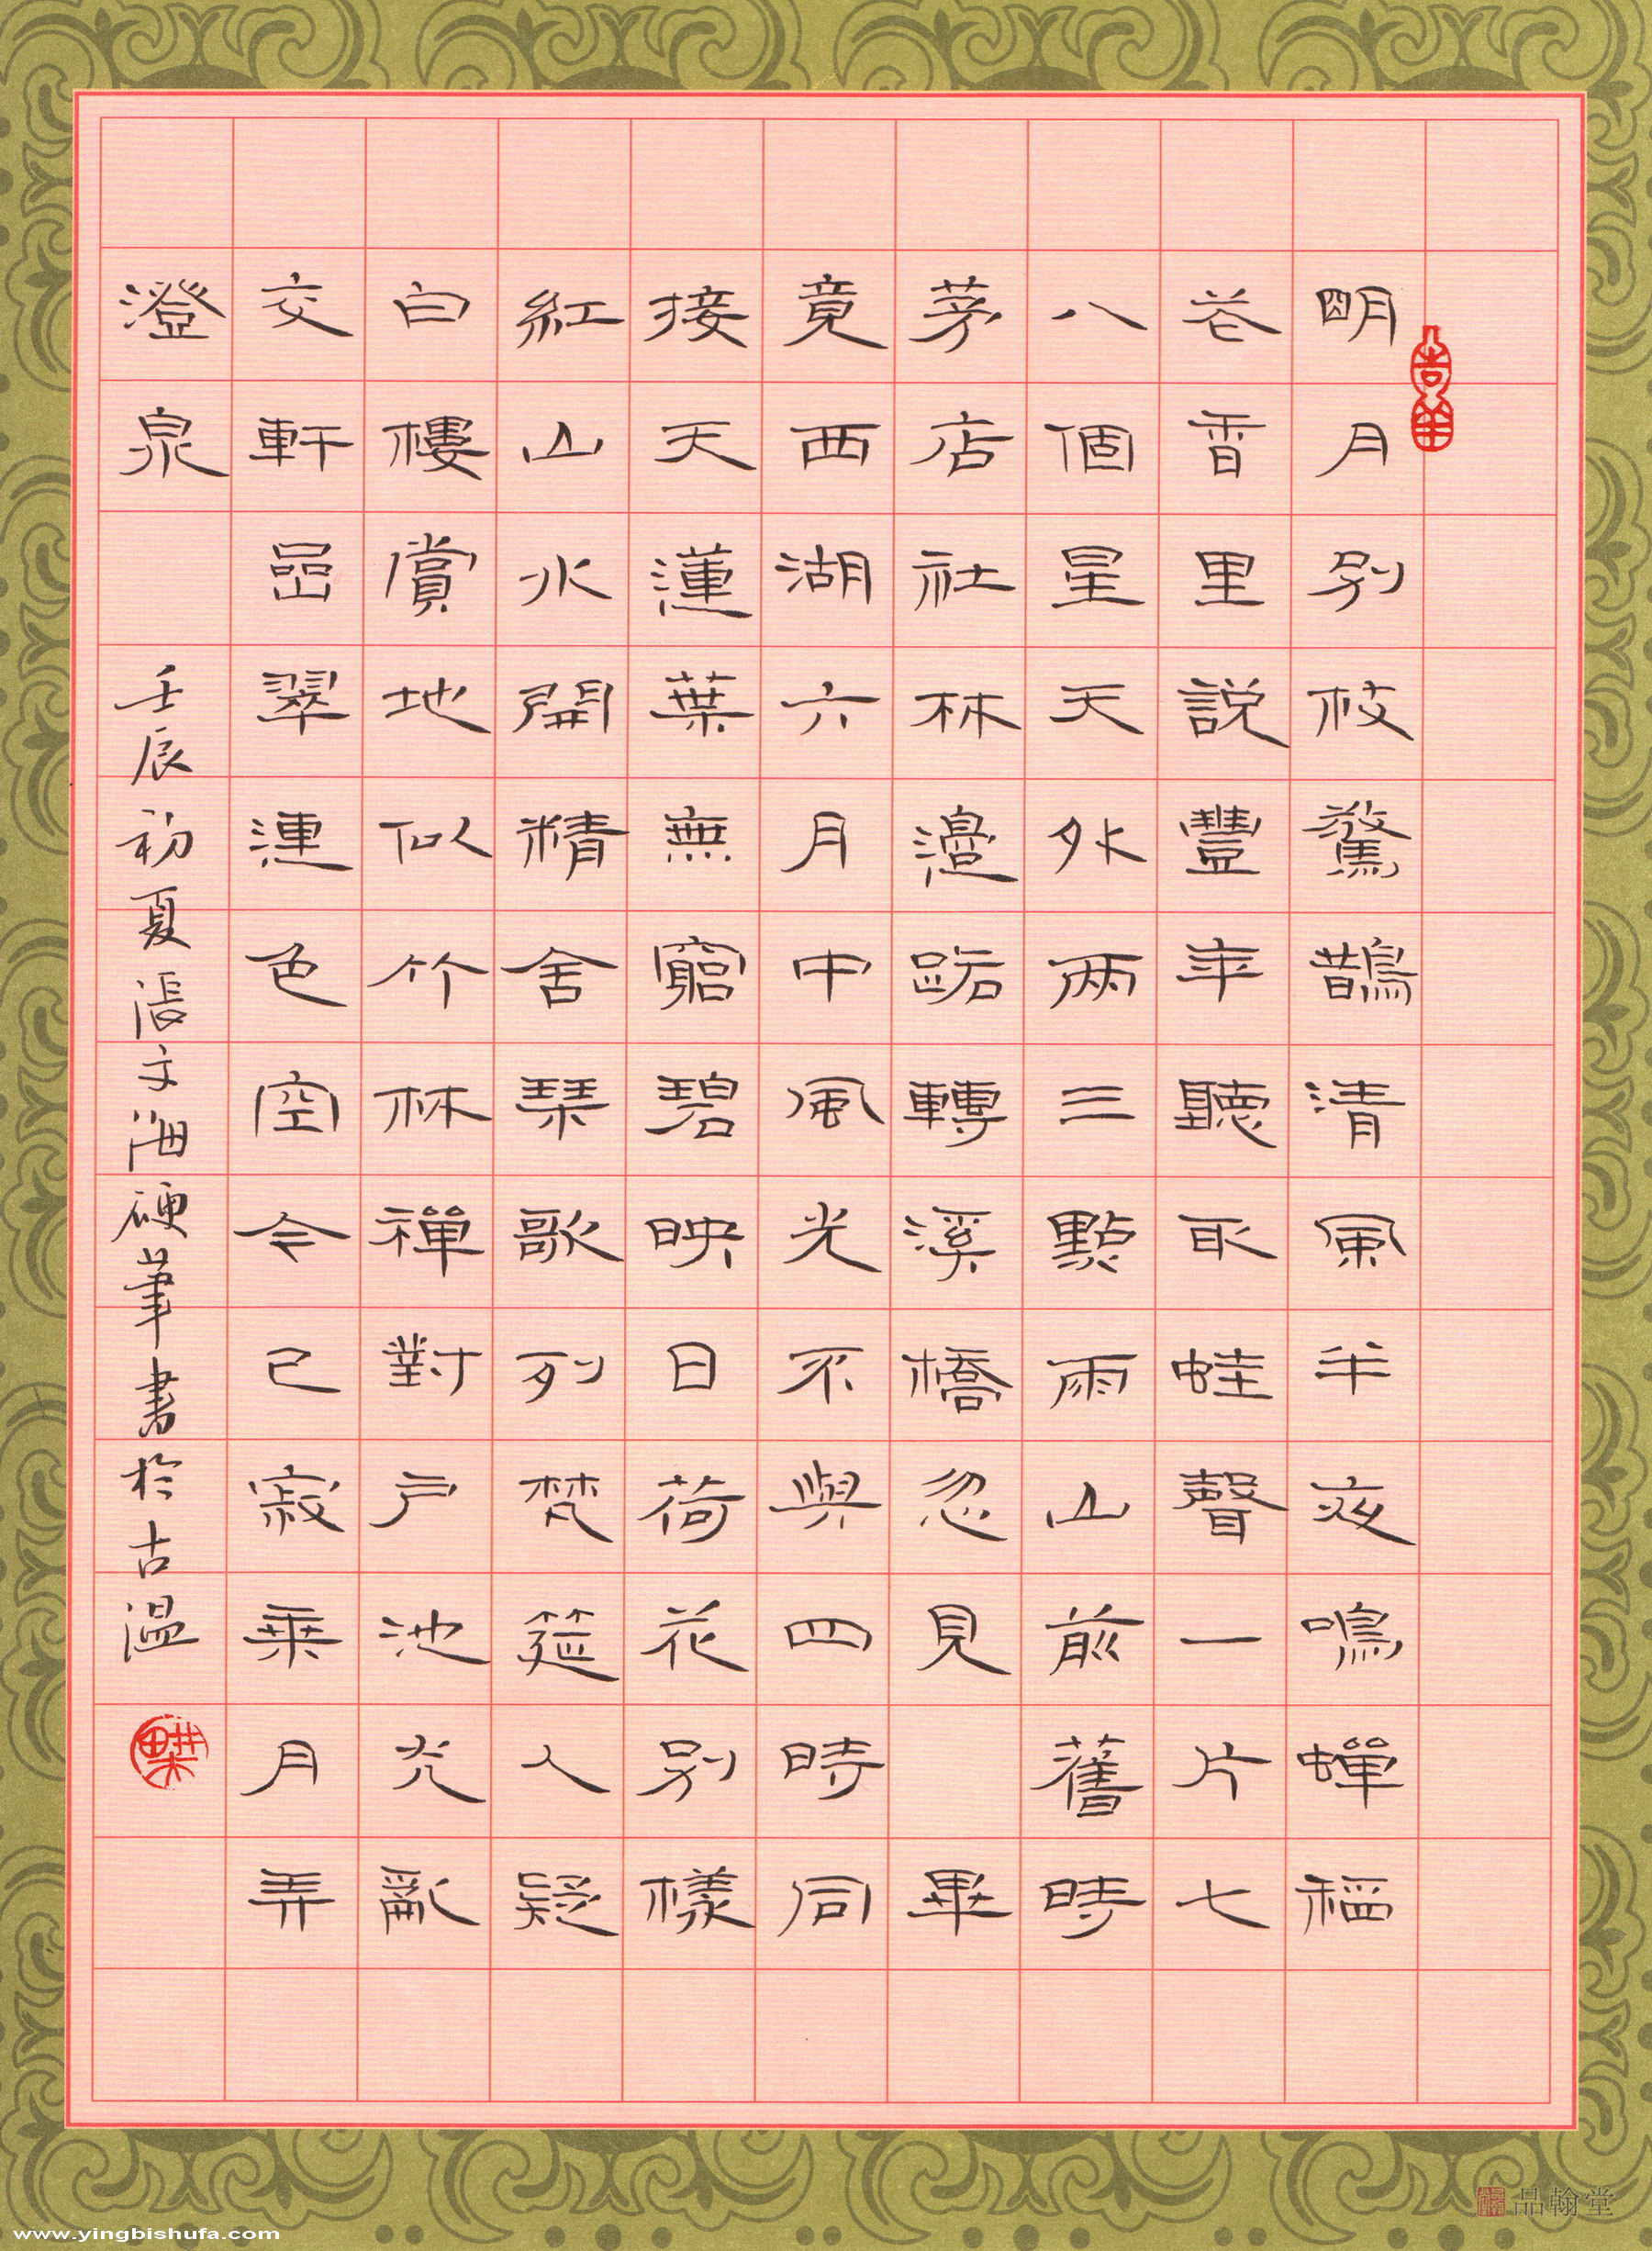 明月别枝驚鵲清風半夜鳴蟬稻
花香里説豐年聽取蛙聲一片七
八個星天外兩三點雨山前舊時
茅店社林邊路轉溪橋忽見 畢
竟西湖六月中風光不與四時同
接天蓮葉無窮碧映日荷花别樣
紅山水開精舍琴歌列梵筵人疑
白樓賞地似竹林禪對户池光亂
交軒嵒翠連色空今已寂乘月弄
澄泉
壬辰初夏張文海硬筆書於古温
吉羊
品翰堂
www.yingbishufa.com